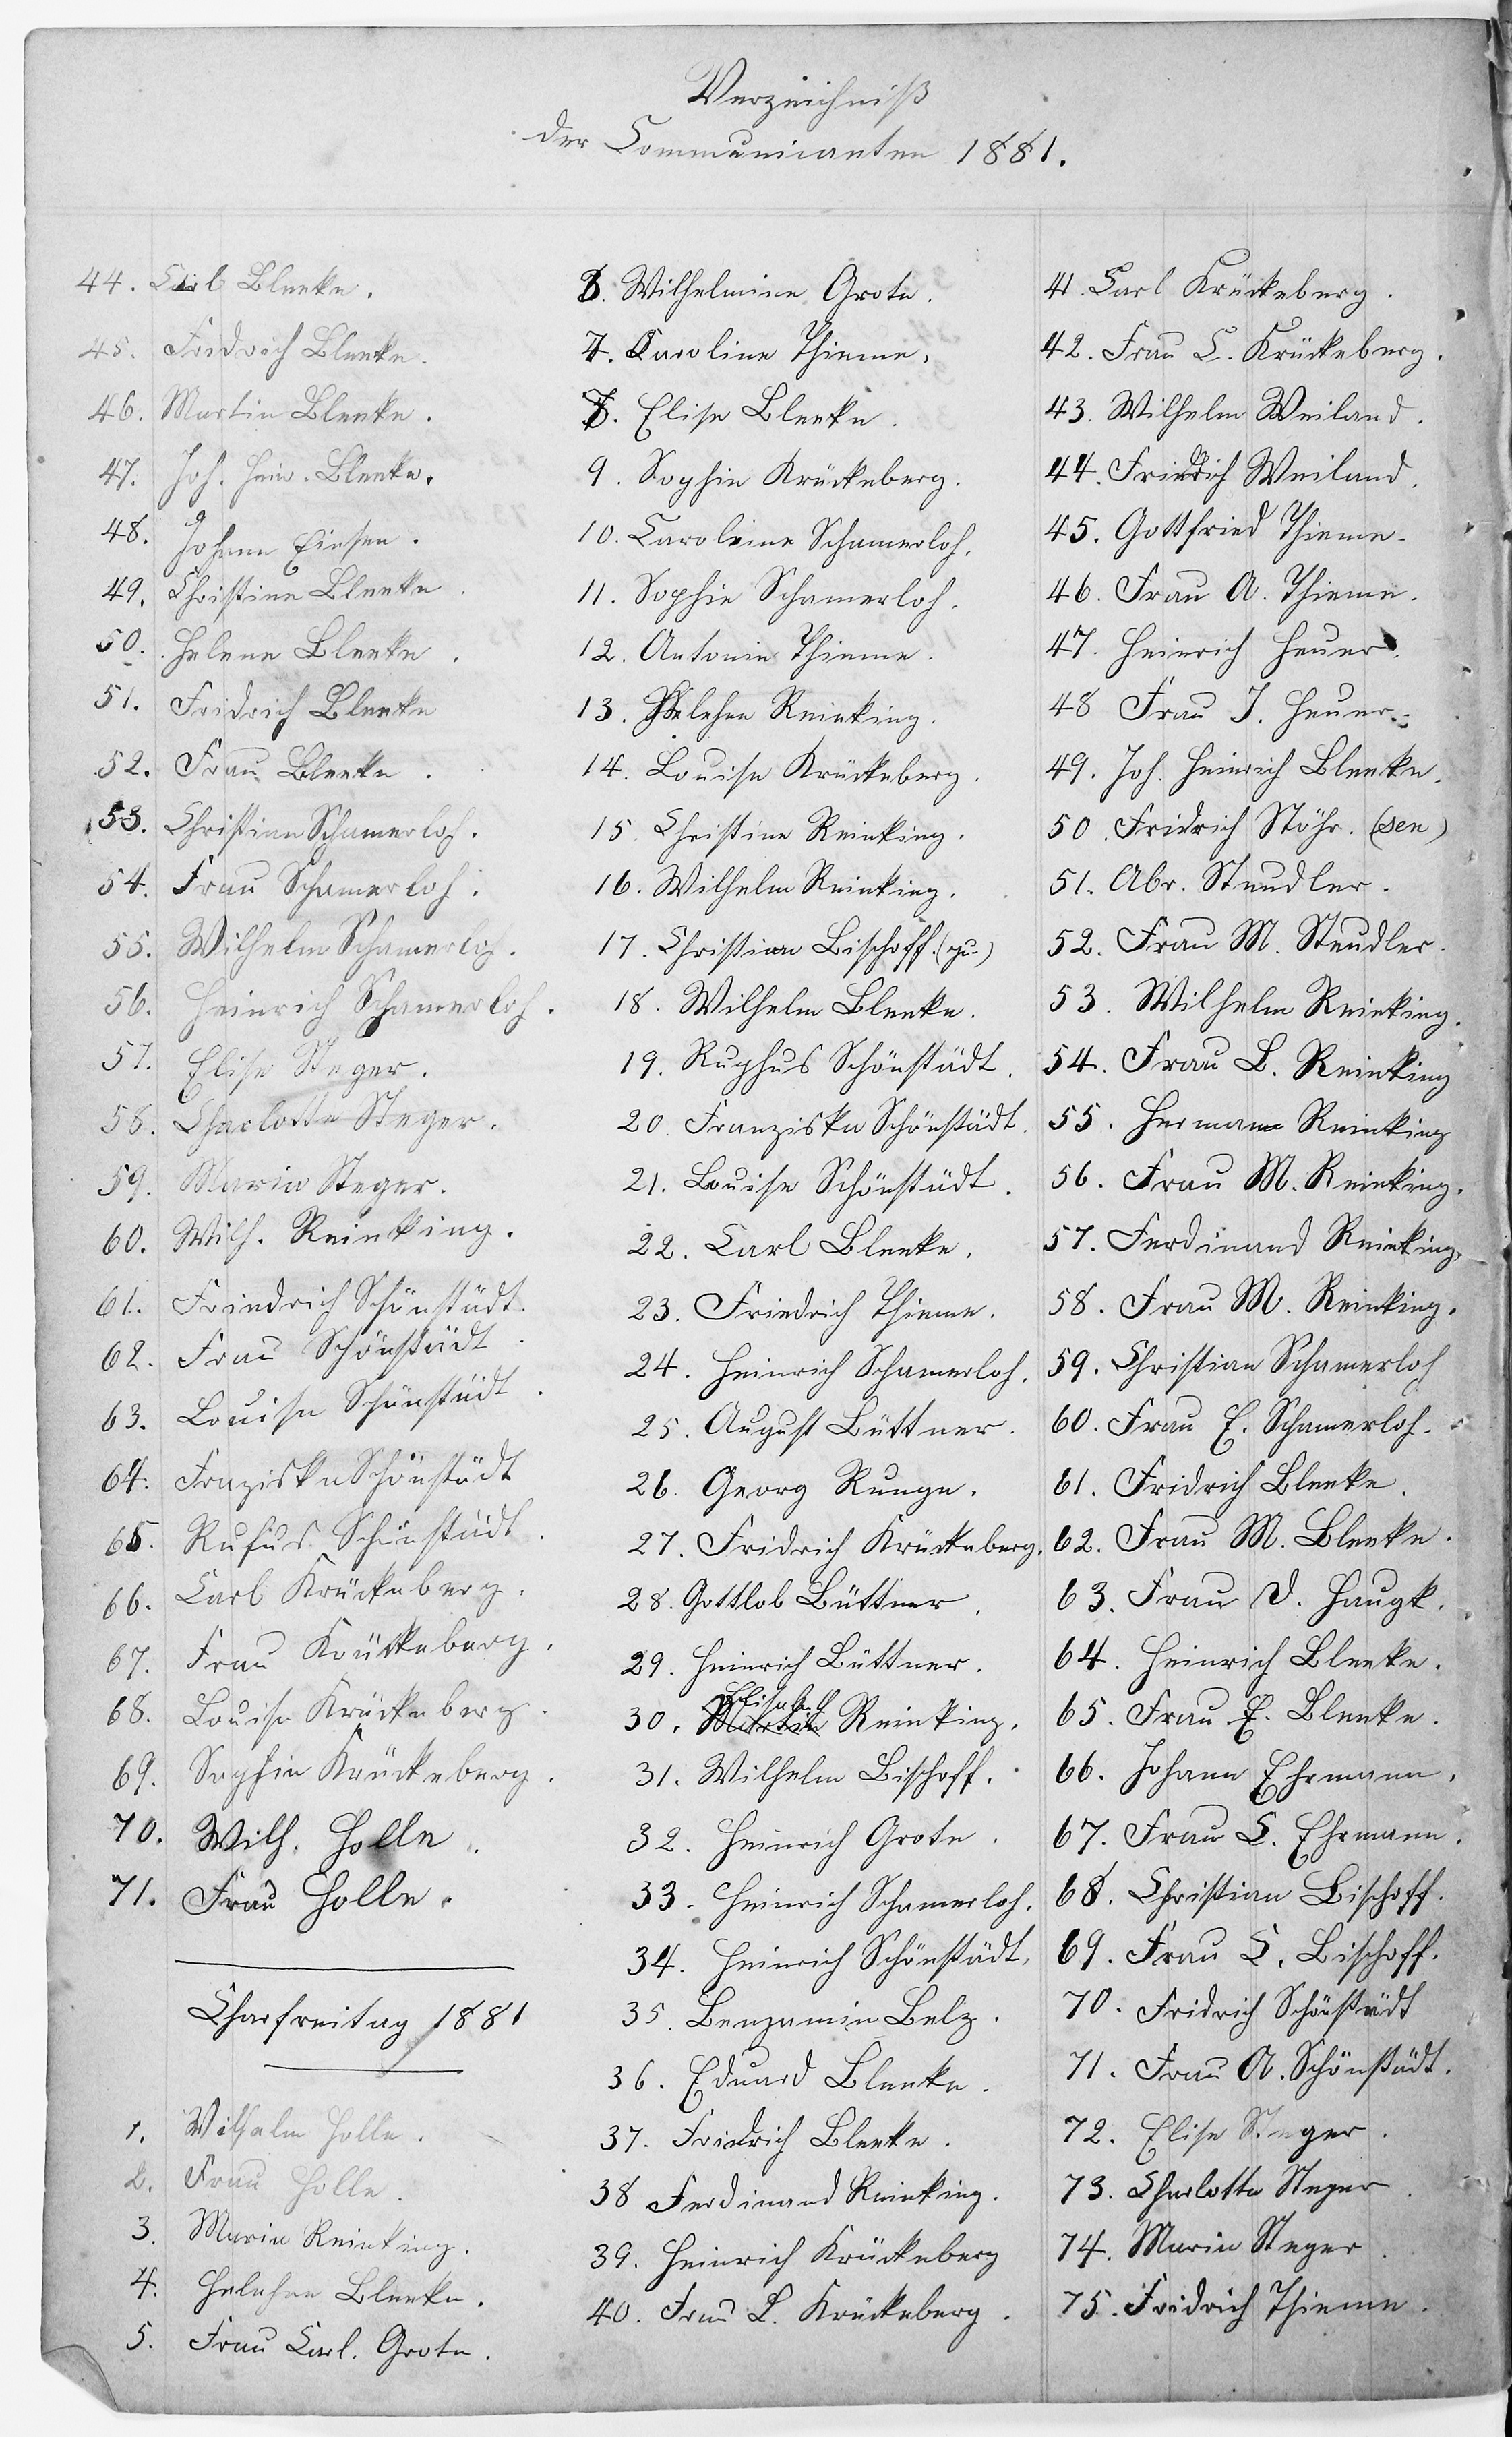 Verzeichniß
der Communicanten 1881.
44. Carl Bleeke.
45. Fridrich Bleeke.
46. Martin Bleeke.
47. Joh. Heinr. Bleeke.
48. Johann Einsen.
49. Christine Bleeke.
50. Helene Bleeke.
51. Fridrich Bleeke
52. Frau Bleeke.
53. Christian Schamerloh.
54. Frau Schamerloh.
55. Wilhelm Schamerloh.
56. Heinrich Schamerloh.
57. Elise Steger.
58. Charlotte Steger.
59. Marie Steger.
60. Wilh. Reinking.
61. Friedrich Schönstädt.
62. Frau Schönstädt.
63. Louise Schönstädt.
64. Fraziska Schönstädt
65. Rufus Schönstädt.
66. Carl Krückeberg.
67. Frau Krückeberg.
68. Louise Krückeberg.
69. Sophie Krückeberg.
70. Wilh. Holle.
71. Frau Holle.
Charfreitag 1881
1. Wilhelm Holle.
2. Frau Holle.
3. Marie Reinking.
4. Helehne Bleeke.
5. Frau Carl. Grote.
6. Wilhelmine Grote.
7. Caroline Thieme.
8. Elise Bleeke.
9. Sophie Krückeberg.
10. Caroleine Schamerloh.
11. Sophie Schamerloh.
12. Antonie Thieme.
13. Helehne Reinking.
14. Louise Krückeberg.
15. Christine Reinking.
16. Wilhelm Reinking.
17. Christian Bischoff. (ju-)
18. Wilhelm Bleeke.
19. Ruphus Schönstädt.
20. Franziska Schönstädt.
21. Louise Schönstädt.
22. Carl Bleeke.
23. Friedrich Thieme.
24. Heinrich Schamerloh.
25. August Büttner.
26. Georg Runge.
27. Fridrich Krückeberg.
28. Gottlob Büttner.
29. Heinrich Büttner.
30. Martin Reinking.
31. Wilhelm Bischoff.
32. Heinrich Grote.
33. Heinrich Schamerloh.
34. Heinrich Schönstädt.
35. Benjamin Belz.
36. Eduard Bleeke.
37. Fridrich Bleeke.
38 Ferdinand Reinking.
39. Heinrich Krückeberg
40. Frau L. Krückeberg.
41. Carl Krückeberg.
42. Frau C. Krückeberg.
43. Wilhelm Weiland.
44. Friedrich Weiland.
45. Gottfried Thieme.
46. Frau A. Thieme.
47. Heinrich Heuer.
48 Frau J. Heuer.
49. Joh. Heinrich Bleeke.
50. Fridrich Stöhr. (sen)
51. Abr. Steudler.
52. Frau M. Steudler.
53. Wilhelm Reinking.
54. Frau L. Reinking
55. Hermann Reinking
56. Frau M. Reinking.
57. Ferdinand Reinking.
58. Frau M. Reinking.
59. Christian Schamerloh
60. Frau E. Schamerloh.
61. Fridrich Bleeke.
62. Frau M. Bleeke.
63. Frau D. Haugk.
64. Heinrich Bleeke.
65. Frau E. Bleeke.
66. Johann Ehrmann.
67. Frau C. Ehrmann.
68. Christian Bischoff.
69. Frau C. Bischoff.
70. Fridrich Schönstädt
71. Frau A. Schönstädt.
72. Elise Steger.
73. Charlotte Steger.
74. Marie Steger.
75. Fridrich Thieme.